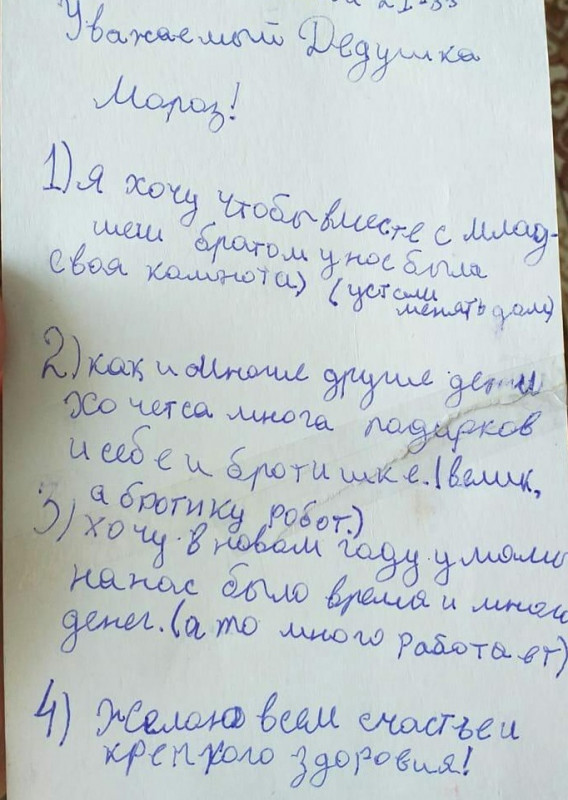 Уважаемый Дедушка
Мороз!
1) Я хочу чтобы вместе с млад-
шем братом у нос была
своя камнота) (устали
менять дом)
2) как и многие другие дети
хочетса многа падирков
и себе и бротишке. (велик,
а бротику робот.)
3) хочу в новом гаду у мамы
на нас было время и много
денег. (а то много работает)
4) Желаю всем счастье и
крепкого здоровия!